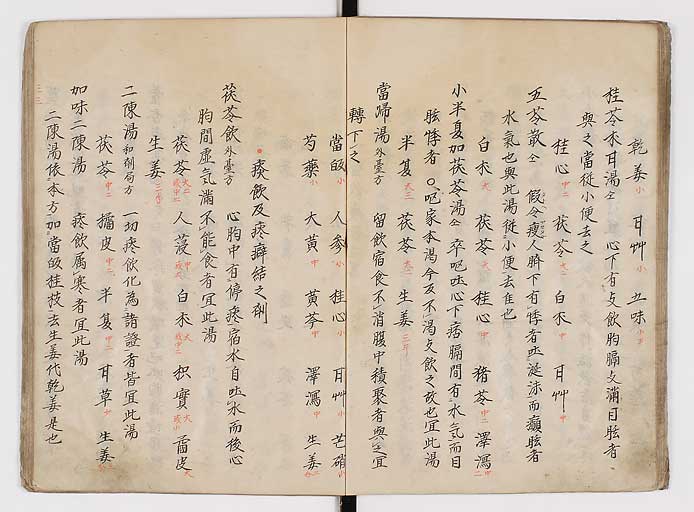 乾姜小 甘艸小 五味小半
桂苓朮甘湯仝 心下有支飲胸膈支滿目眩者
與之當従小便去之
桂心中二 茯苓大二 白朮中 甘艸中
五苓散仝 假令瘦人臍下有悸者吐涎沫而癲眩者
水氣也與此湯従小便去隹也
白朮大 茯苓大 桂心中 猪苓中二 澤瀉中二
小半夏加茯苓湯仝 卒呕吐心下痞膈間有水氣而目
眩悸者 〇呕家本渴今反不渴支飲之故也宜此湯
半夏大三 茯苓大二 生姜三斤
當歸湯外臺方 留飲宿食不消腹中積聚者與之宜
轉下之
當皈小 人參小 桂心小 甘艸小 芒硝小
芍藥小 大黄中 黄芩中 澤瀉中 生姜
痰飲及痰癖結之剤
茯苓飲外臺方 心胸中有停痰宿水自吐水而後心
胸間虛氣滿不能食者宜此湯
茯苓大二 人蓡中 白朮大 枳實大 畱皮大
生姜
二陳湯和剤局方 一切痰飲化為諸證者皆宜此湯
茯苓中二 橘皮中二 半夏中二 甘草 生姜
加味二陳湯 痰飲属寒者宜此湯
二陳湯依本方加當皈桂枝去生姜代乾姜是也